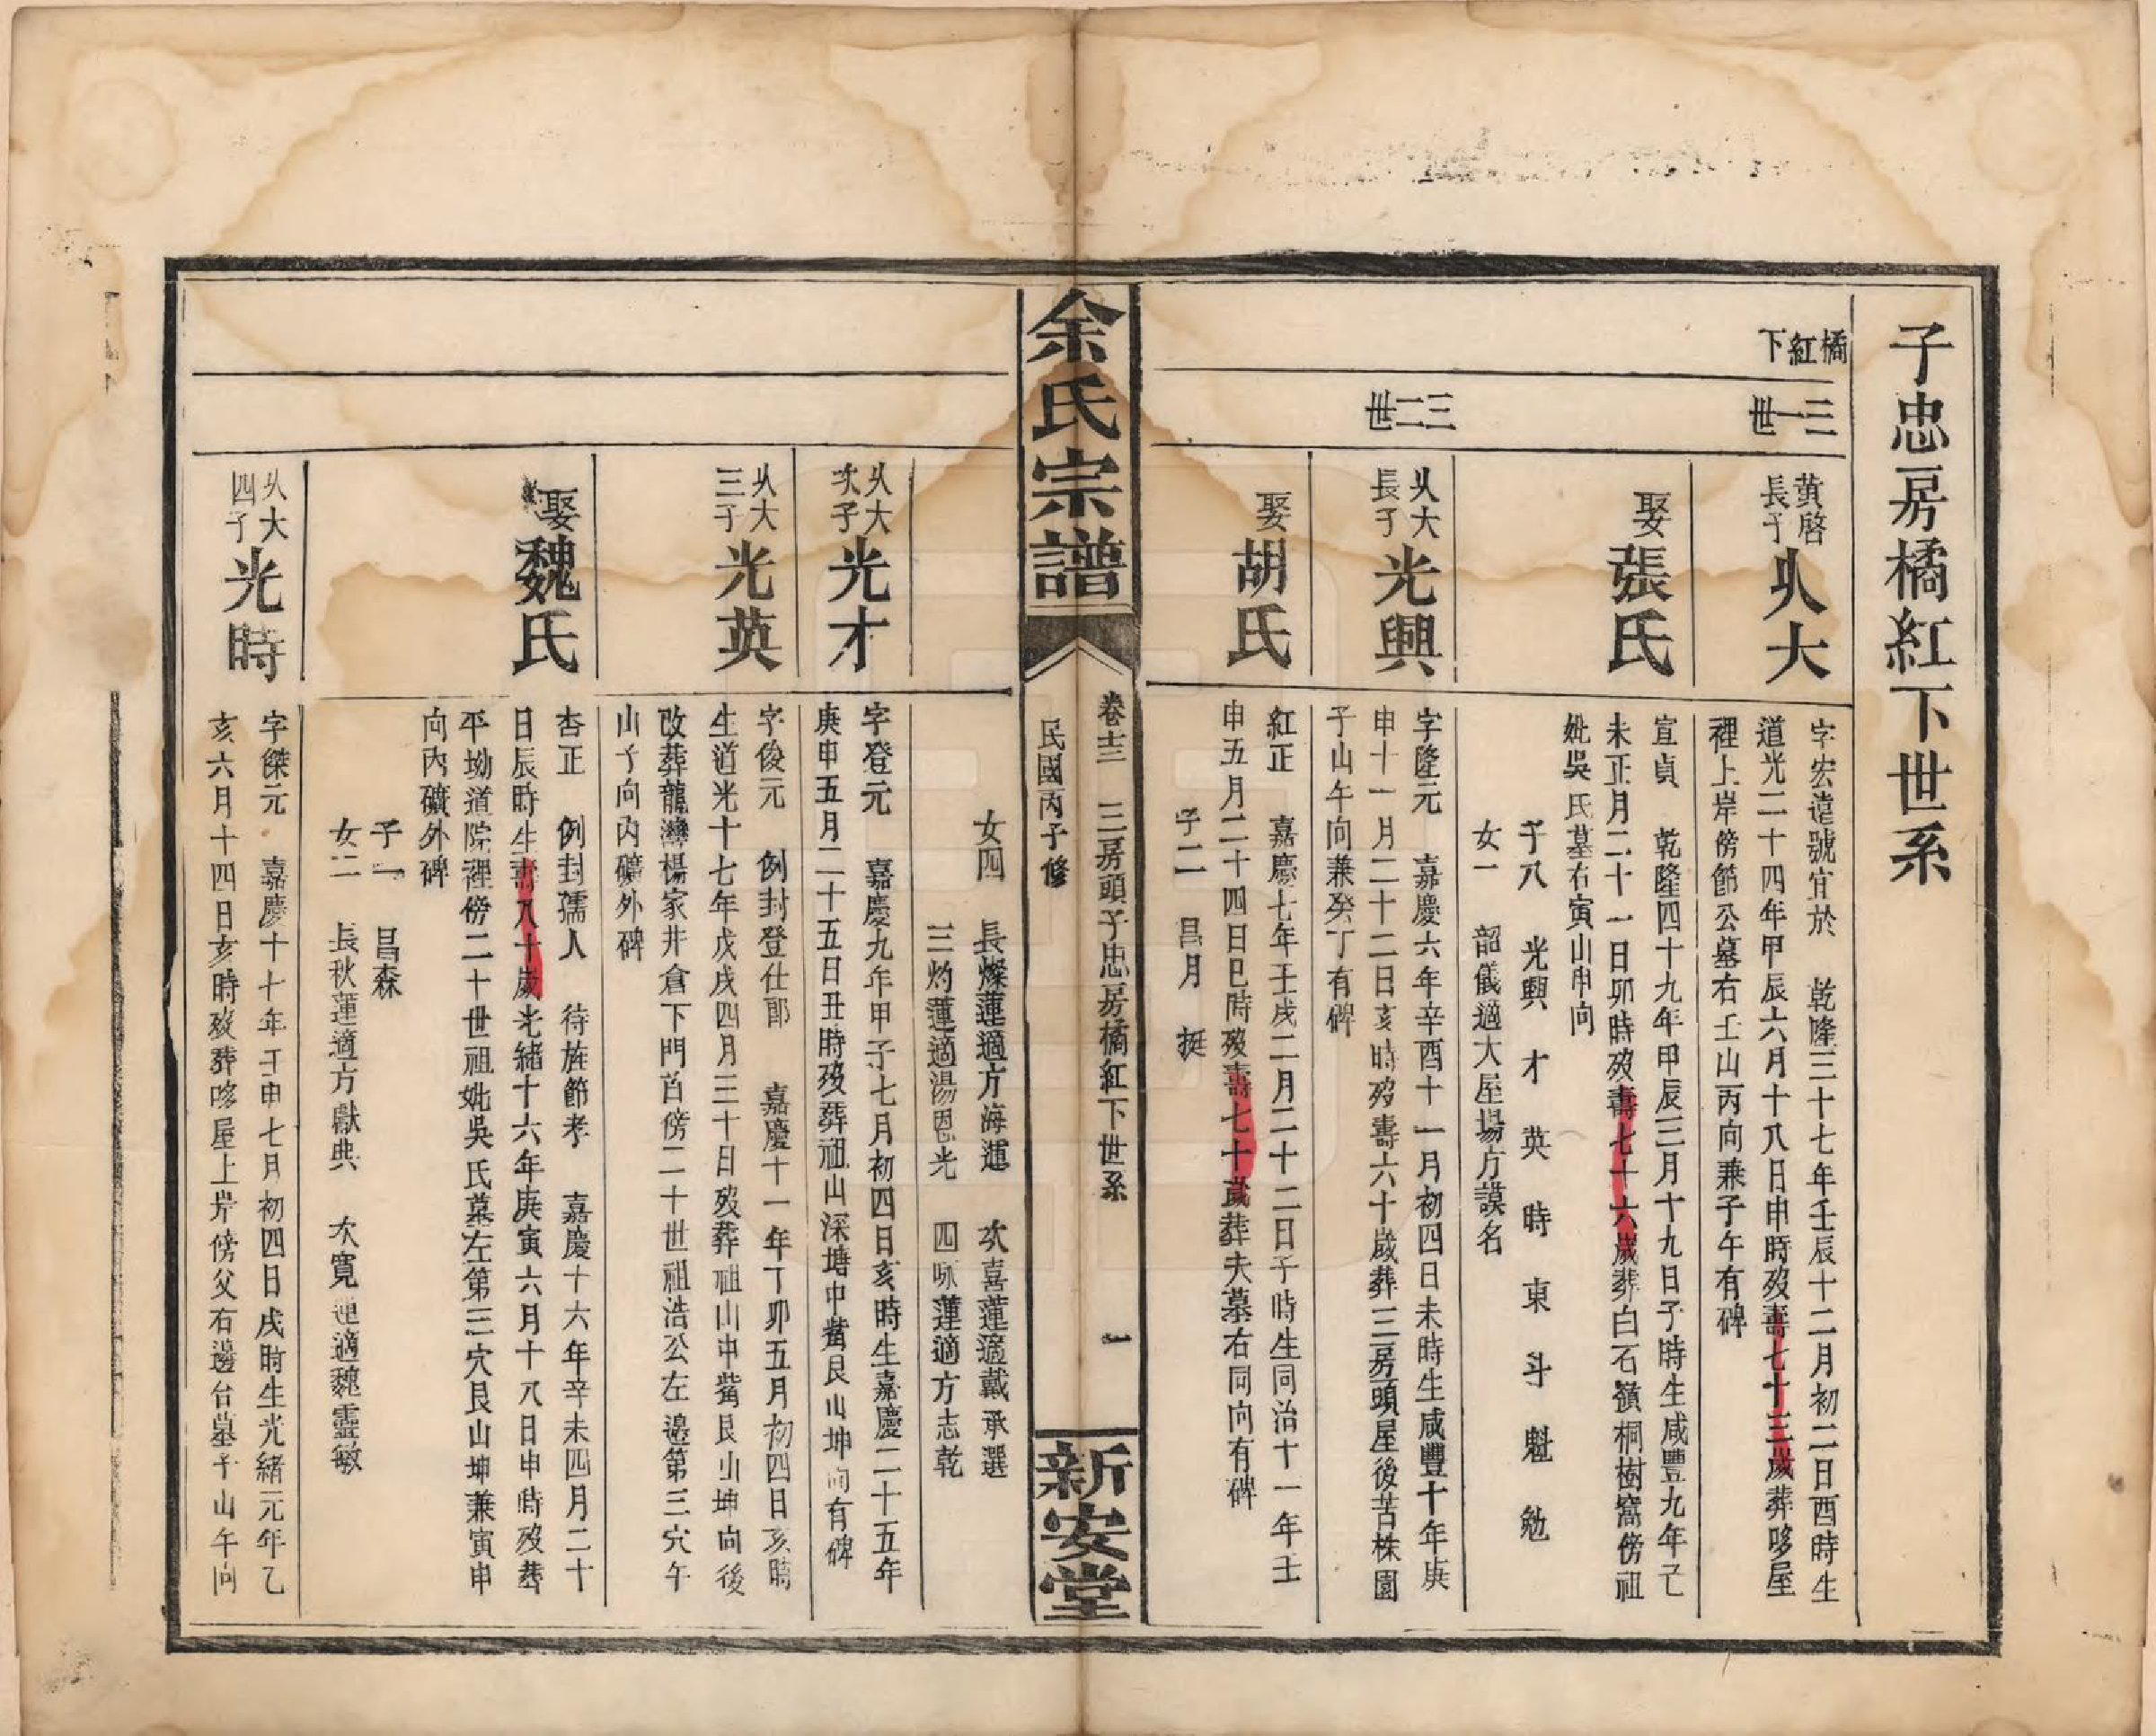 子忠房橘紅下世系
橘紅下
三一世
黃啓長子
乆大
字宏遠號宜於 乾隆三十七年壬辰十二月初二日酉時生
道光二十四年甲辰六月十八日申時歿壽七十三歲葬哆屋
裡上岸傍節公墓右壬山丙向兼子午有碑
娶張氏
宣貞 乾隆四十九年甲辰三月十九日子時生咸豐九年己
未正月二十一日卯時歿壽七十六歲葬白石嶺桐樹窩傍祖
妣吳氏墓右寅山申向
子八 光興 才 英 時 東 斗 魁 勉
女一 韶儀適大屋場方謨名
三二世
乆大長子
光興
字隆元 嘉慶六年辛酉十一月初四日未時生咸豐十年庚
申十一月二十二日亥時歿壽六十歲葬三房頭屋後苦株園
子山午向兼癸丁有碑
娶胡氏
紅正 嘉慶七年壬戌二月二十二日子時生同治十一年壬
申五月二十四日巳時歿壽七十歲葬夫墓右同向有碑
子二 昌月 挺
余氏宗譜
卷十三 三房頭子忠房橘紅下世系 一
民國丙子修
新安堂
女四 長燦蓮適方海運 次喜蓮適戴承選
三灼蓮適湯恩光 四咏蓮適方志乾
乆大次子
光才
字登元 嘉慶九年甲子七月初四日亥時生嘉慶二十五年
庚申五月二十五日丑時歿葬祖山深塘中觜艮山坤向有碑
乆大三子
光英
字俊元 例封登仕郎 嘉慶十一年丁卯五月初四日亥時
生道光十七年戊戌四月三十日歿葬祖山中觜艮山坤向後
改葬龍灣楊家井倉下門首傍二十世祖浩公左邉第三穴午
山子向內礦外碑
娶魏氏
杏正 例封孺人 待旌節孝 嘉慶十六年辛未四月二十
日辰時生壽八十歲光緒十六年庚寅六月十八日申時歿葬
平坳道院裡傍二十世祖妣吳氏墓左第三穴艮山坤兼寅申
向內礦外碑
子一 昌森
女二 長秋蓮適方獻典 次寬蓮適魏靈敏
乆大四子
光時
字傑元 嘉慶十七年壬申七月初四日戌時生光緒元年乙
亥六月十四日亥時歿葬哆屋上岸傍父右邊台墓子山午向